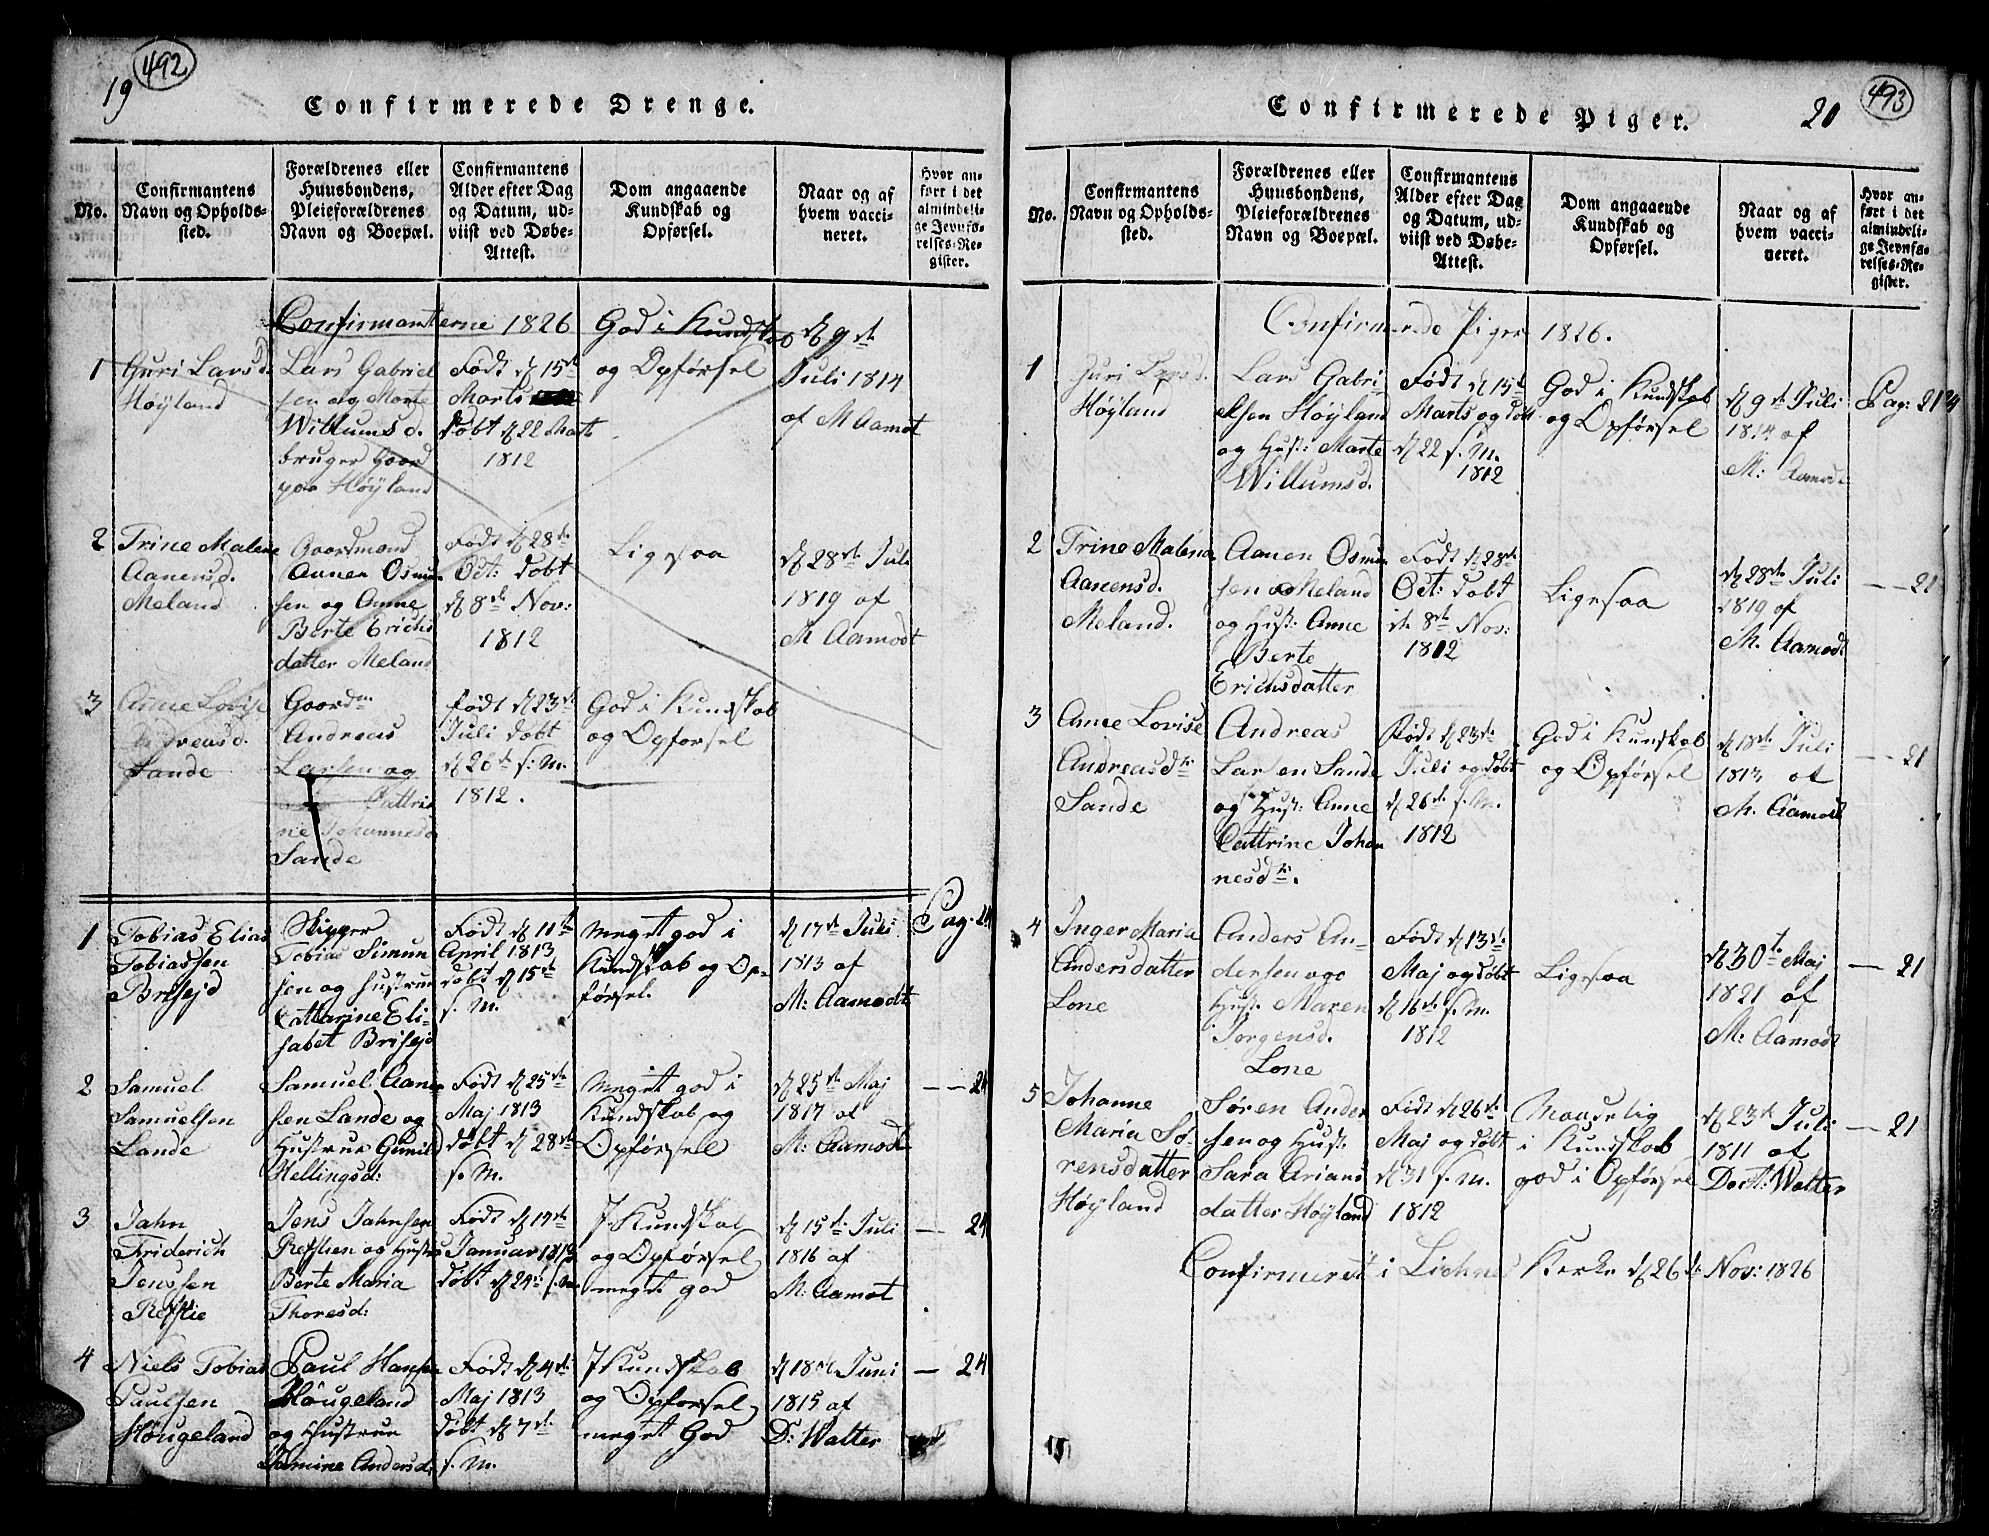 19
492
Confirmerede Drenge.
No.
Confirmantens
Navn og Opholds-
sted.
Forældrenes eller
Huusbondens,
Pleieforældrenes
Navn og Boepæl.
Confirmantens
Alder efter Dag
og Datum, ud-
viist ved Døbe-
Attest.
Dom angaaende
Kundskab og
Opførsel.
Naar og af
hvem vacci-
neret.
Hvor an-
ført i det
almindeli-
ge Jevnfø-
relses-Re-
gister.
Confirmanterne 1826
1
Guri Larsd.
Høyland
Lars Gabriel
sen og Marte
Willumsd.
bruger Gaard
paa Høyland
Født d 15de
Marts
døbt d 22 Marts
1812
God i Kundskab
og Opførsel
d 9de
Juli 1814
af M Aamot
2
Trine Malene
Aanensd.
Meland
Gaardmand
Aanen Osmun
sen og Anne
Berte Erichs
datter Meland
Født d 28de
Oct: døbt
d 8de Nov:
1812
Ligesaa
d 28de Juli
1819 af
M Aamodt
3
Anne Lovise
Andreasd.
Sande
Gaardm
Andreas
Larsen og
Cattri
ne Johannesd
Sande
Født d 23de
Juli døbt
d 26de s. M.
1812.
God i Kundskab
og Opførsel
1
Tobias Elias
Tobiassen
Brisejd
Skipper
Tobias Simon
sen og Hustrue
Catharine Eli-
sabet Brisejd
Født d 11te
April 1813
døbt d 15de
s. M.
Meget god i
Kundskab og Op-
førsel.
d 17de Juli
1813 af
M: Aamodt
Pag. 24
2
Samuel
Samuelsen
Lande
Samuel Aanen
sen Lande og
Hustrue Gunild
Hellingsd:
Født d 25de
Maj 1813
døbt d 28de
s. M.
Meget god i
Kundskab og
Opførsel
d 25de Maj
1817 af
M: Aamodt
— — 24
3
Jahn
Friderich
Jenssen
Refslie
Jens Jahnsen
Refslien og Hustrue
Berte Maria
Thoresd:
Født d 19de
Januar 1813
døbt d 24de s. M.
I Kundskab
og Opførsel
meget god
d 15de Juli
1816 af
M: Aamot
— 24
4
Niels Tobias
Paulsen
Høugeland
Paul Hansen
Høugeland
og Hustrue
Tomine Andersd:
Født d 4de
Maj 1813
døbt d 7de
s. M.
I Kundskab
og Opførsel
meget God
d 18de Juni
1815 af
D: Walter
— 24
Confirmerede Piger.
20
493
No.
Confirmantens
Navn og Opholds-
sted.
Forældrenes eller
Huusbondens,
Pleieforældrenes
Navn og Boepæl.
Confirmantens
Alder efter Dag
og Datum, ud-
viist ved Døbe-
Attest.
Dom angaaende
Kundskab og
Opførsel.
Naar og af
hvem vacci-
neret.
Hvor an-
ført i det
almindeli-
ge Jevnfø-
relses-Re-
gister.
Confirmerede Piger 1826.
1
Juri Larsd.
Høyland
Lars Gabri-
elsen Høyland
og Hust: Marte
Willumsd.
Født d 15de
Marts og døbt
d 22 s. M.
1812
God i Kundskab
og Opførsel
d 9de Juli
1814 af
M: Aamodt
Pag: 21
2
Trine Malena
Aanensd.
Meland.
Aanen Osmun
sen Meland
og Hust: Anne
Berte
Erichsdatter
Født d 28de
Oct: døbt
d. 8de Nov:
1812
Ligesaa
d 28de Juli
1819 af
M. Aamodt
— — 21
3
Anne Lovise
Andreasdtr
Sande
Andreas
Larsen Sande
og Hust: Anne
Cattrine Johan
nesdtr.
Født d 23de
Juli og døbt
d 26de s. M.
1812
God i Kundskab
og Opførsel
d 18de Juli
1813 af
M. Aamodt
— — 21
4
Inger Maria
Andersdatter
Lone
Anders An-
dersen og
Hust: Maren
Jørgensd.
Lone
Født d 13de
Maj og døbt
d 16de s. M.
1812
Ligesaa
d 30te Maj
1821 af
M: Aamodt
— 21
5
Johanne
Maria Sø-
rensdatter
Høyland
Søren Ander
sen og Hust:
Sara Arians
datter Høyland
Født d 26de
Maj og døbt
d 31 s. M.
1812
Maadelig
i Kundskab
god i Opførsel
d 23de Juli
1811 af
Doct: Walter
— 21
Confirmeret i Liehnes Kerke d 26de Nov: 1826